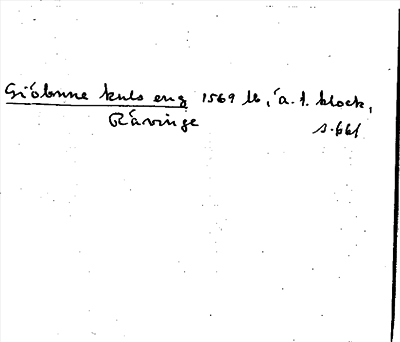 Giöbnne kuls eng 1569 lb, ä. t. klock,
Rävinge s. 661